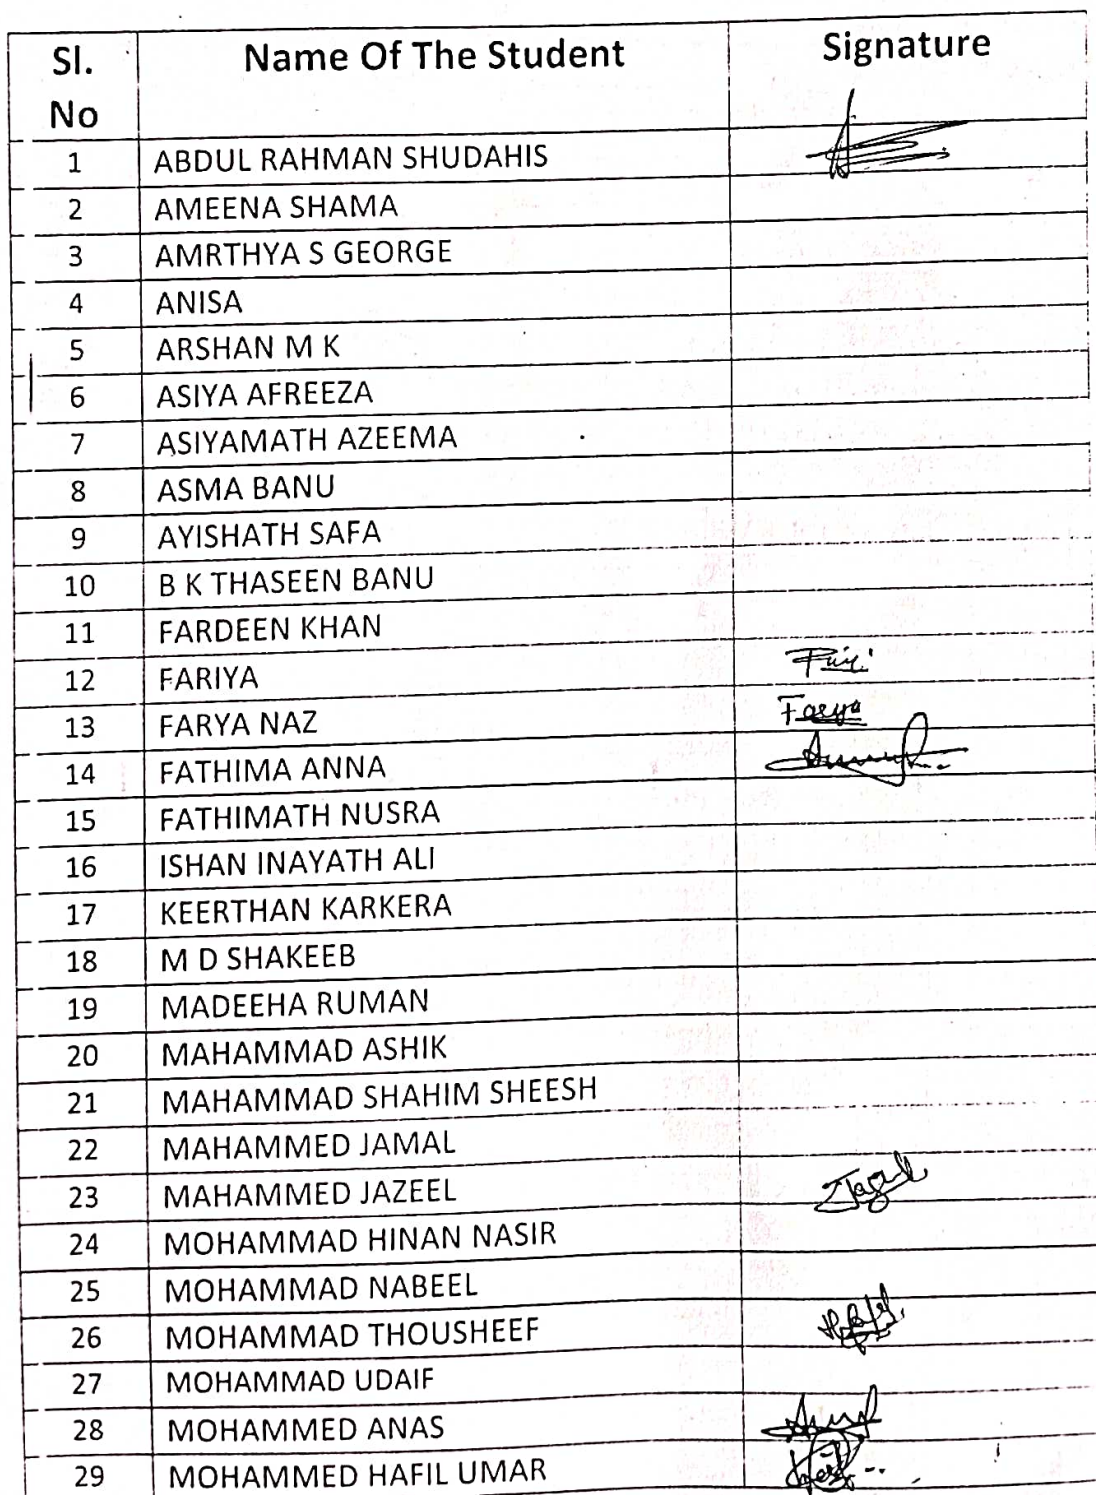 Sl. No Name Of The Student Signature
1 ABDUL RAHMAN SHUDAHIS
2 AMEENA SHAMA
3 AMRTHYA S GEORGE
4 ANISA
5 ARSHAN M K
6 ASIYA AFREEZA
7 ASIYAMATH AZEEMA
8 ASMA BANU
9 AYISHATH SAFA
10 B K THASEEN BANU
11 FARDEEN KHAN
12 FARIYA
13 FARYA NAZ Farya
14 FATHIMA ANNA
15 FATHIMATH NUSRA
16 ISHAN INAYATH ALI
17 KEERTHAN KARKERA
18 M D SHAKEEB
19 MADEEHA RUMAN
20 MAHAMMAD ASHIK
21 MAHAMMAD SHAHIM SHEESH
22 MAHAMMED JAMAL
23 MAHAMMED JAZEEL
24 MOHAMMAD HINAN NASIR
25 MOHAMMAD NABEEL
26 MOHAMMAD THOUSHEEF
27 MOHAMMAD UDAIF
28 MOHAMMED ANAS
29 MOHAMMED HAFIL UMAR